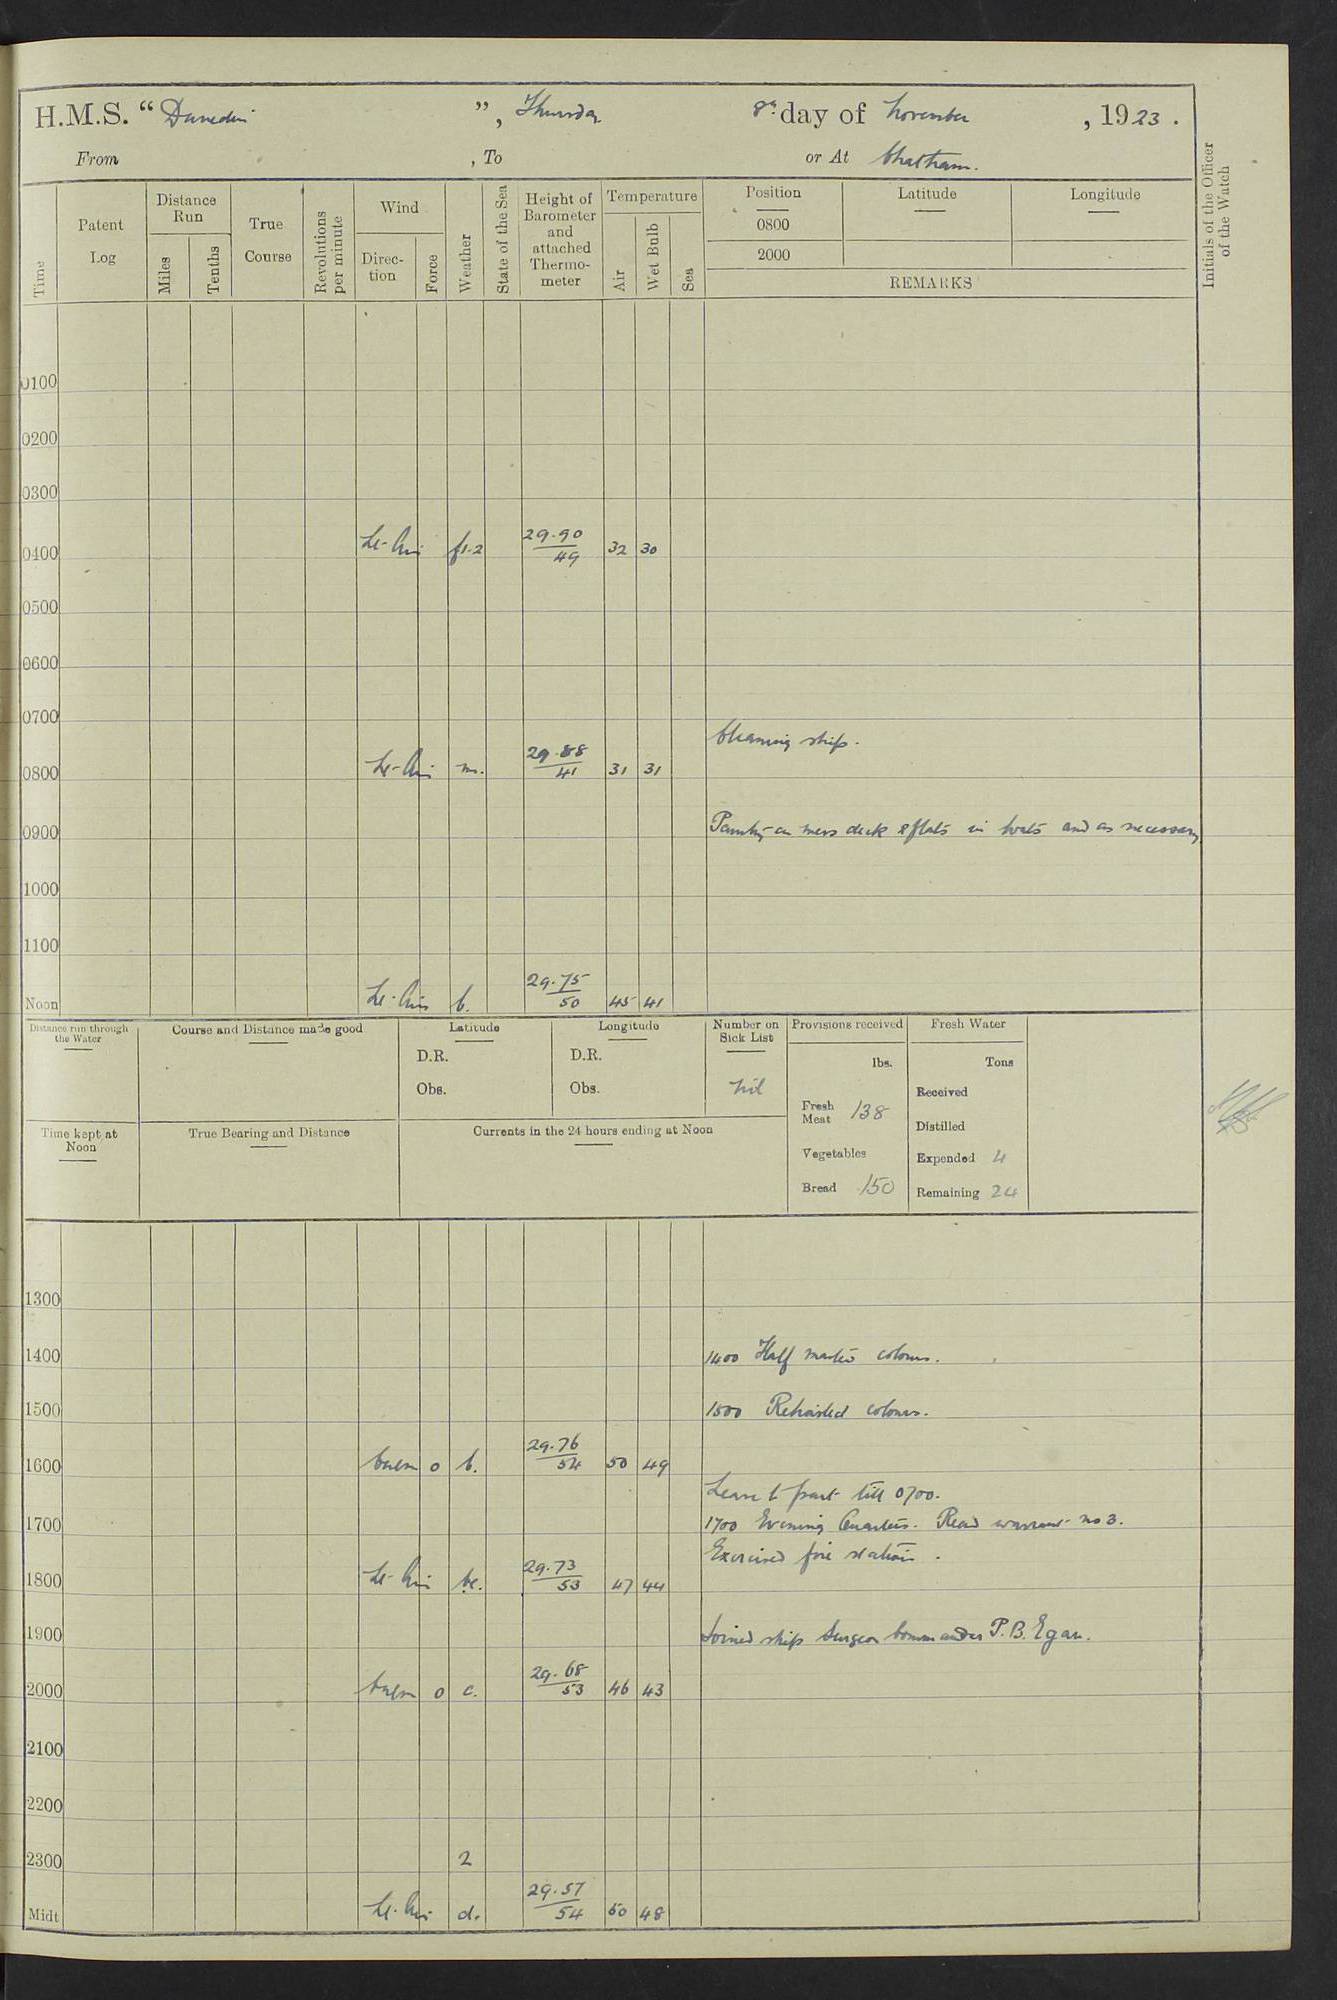 H.M.S. “Dunedin”, Thursday 8th day of November, 1923.
From , To or At Chatham.
Time
Patent Log
Distance Run
Miles
Tenths
True Course
Revolutions per minute
Wind
Direction
Force
Weather
State of the Sea
Height of Barometer and attached Thermometer
Temperature
Air
Wet Bulb
Sea
Position
Latitude
Longitude
0800
2000
REMARKS
Initials of the Officer of the Watch
0100
0200
0300
0400 Lt. Airs 29.90/49 32 30
0500
0600
0700
Cleaning ship.
0800 Lt. Airs m. 29.88/41 31 31
0900 on mess deck & flats in boats and as necessary
1000
1100
Noon Lt. Airs b. 29.75/50 45 41
Distance run through the Water
Course and Distance made good
Latitude
D.R.
Obs.
Longitude
D.R.
Obs.
Number on Sick List
Nil
Provisions received
lbs.
Fresh Meat 138
Vegetables
Bread 150
Fresh Water
Tons
Received
Distilled
Expended 4
Remaining 24
Time kept at Noon
True Bearing and Distance
Currents in the 24 hours ending at Noon
1300
1400 1400 Half masted colours.
1500 1500 Rehoisted colours.
1600 Calm 0 b. 29.76/54 50 49
Leave to part till 0700.
1700 1700 Evening Quarters. Read warrant no 3.
Exercised fire stations.
1800 Lt. Airs bc. 29.73/53 47 44
1900 Joined ship Surgeon Commander P.B. Egan.
2000 Calm 0 c. 29.68/53 46 43
2100
2200
2300 2
Midt Lt. Airs d. 29.57/54 50 48